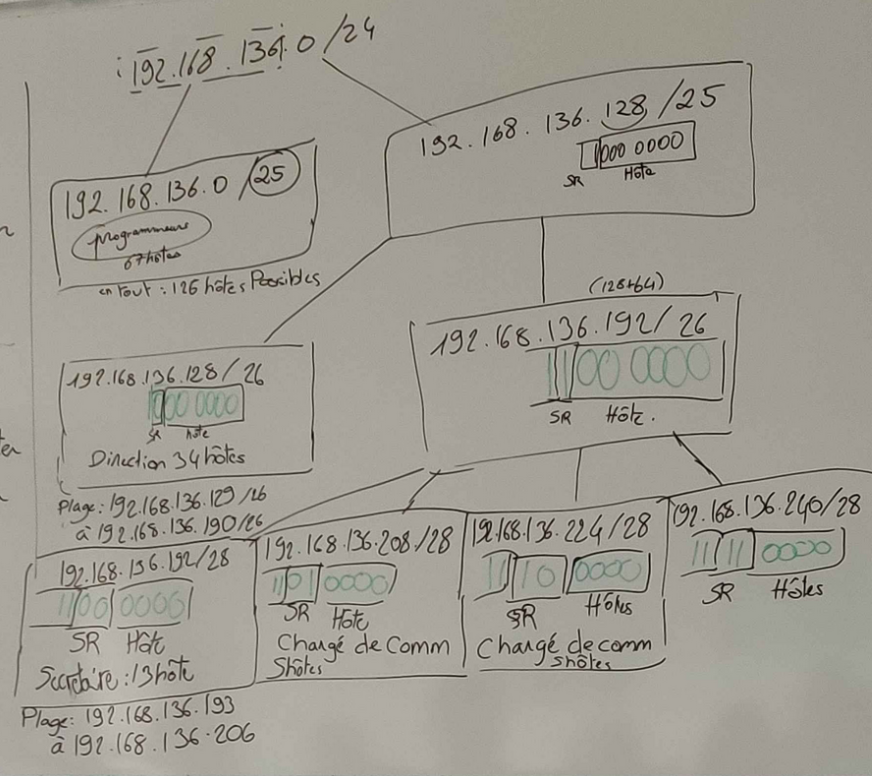 192.168.136.0 /24
192.168.136.128 /25
1000 0000
SR Hôte
192.168.136.0 /25
programmeurs
67 hôtes
en tout : 126 hôtes Possibles
(128+64)
192.168.136.192/26
1100 0000
SR Hôte.
192.168.136.128/26
1000 0000
SR hôte
Direction 34 hôtes
Plage: 192.168.136.129/26
à 192.168.136.190/26
192.168.136.192/28
1100 0000
SR Hôte
Secrétaire: 13 hôte
Plage: 192.168.136.193
à 192.168.136.206
192.168.136.208/28
1101 0000
SR Hôte
Chargé de Comm
5hôtes
192.168.136.224/28
1110 0000
SR Hôtes
Chargé de comm
5hôtes
192.168.136.240/28
1111 0000
SR Hôtes